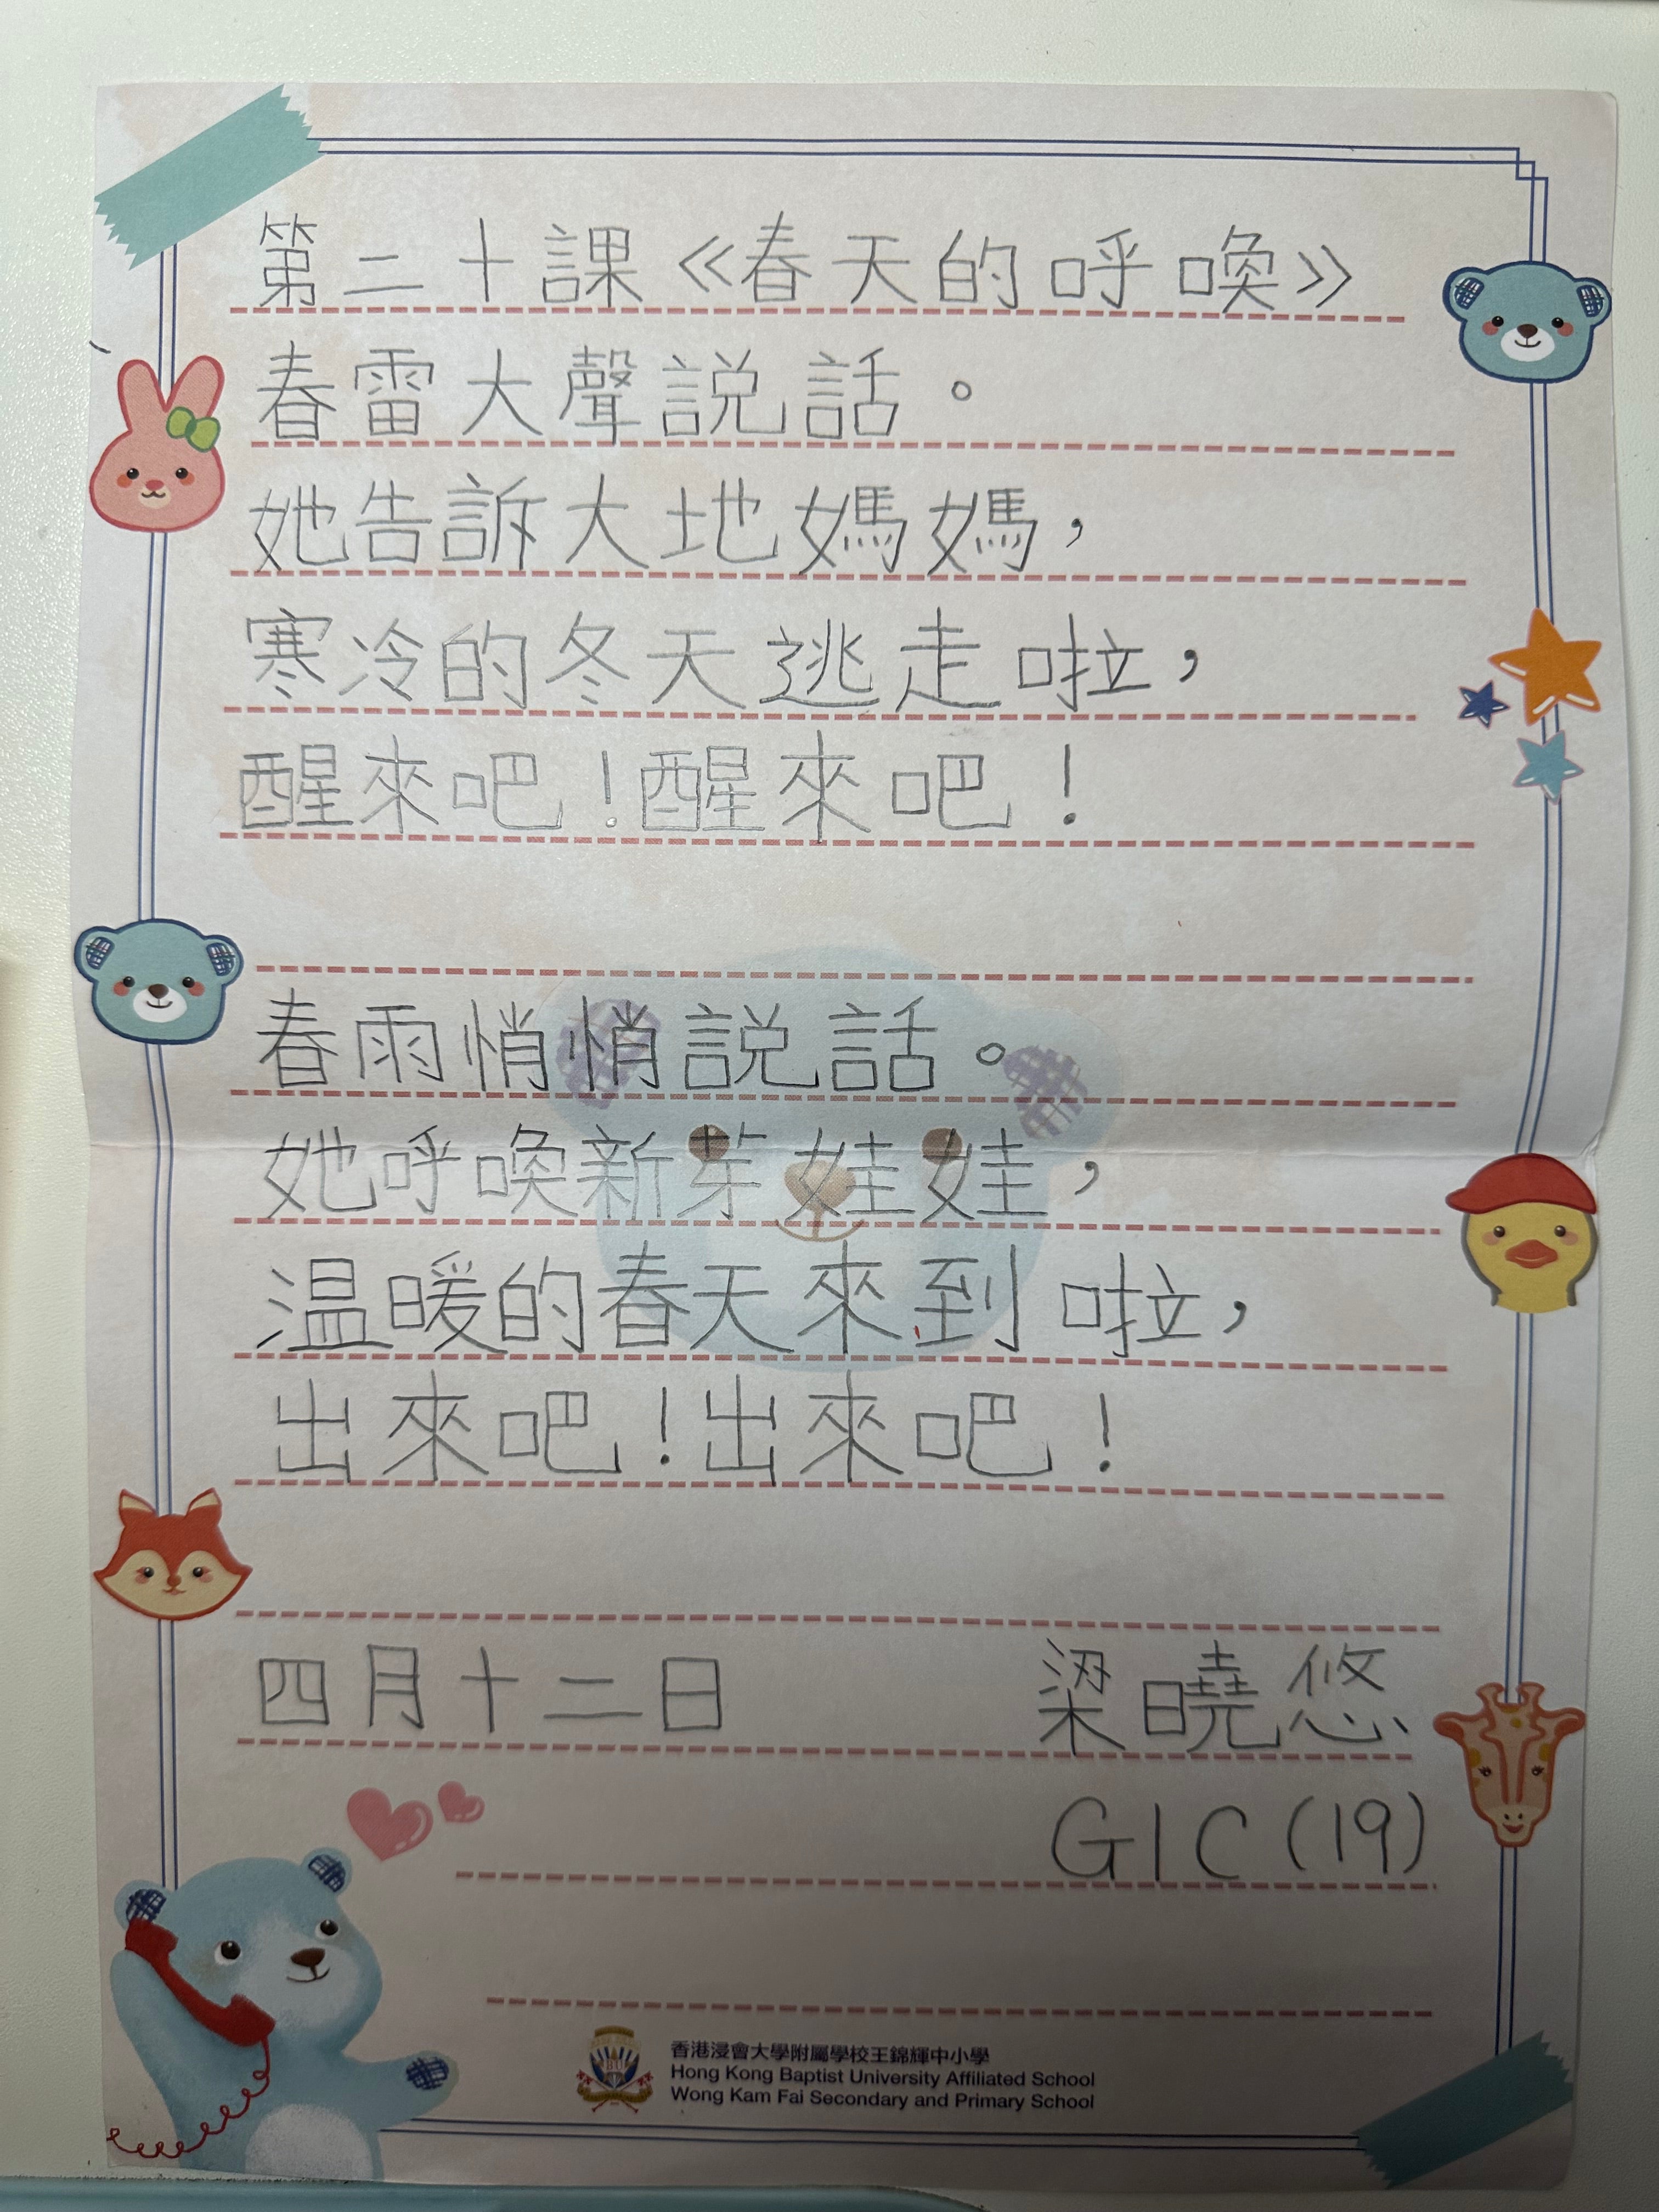 第二十課《春天的呼喚》
春雷大聲説話。
她告訴大地媽媽，
寒冷的冬天逃走啦，
醒來吧！醒來吧！
春雨悄悄説話。
她呼喚新芽娃娃，
温暖的春天來到啦，
出來吧！出來吧！
四月十二日 梁曉悠
G1C(19)
香港浸會大學附屬學校王錦輝中小學
Hong Kong Baptist University Affiliated School
Wong Kam Fai Secondary and Primary School